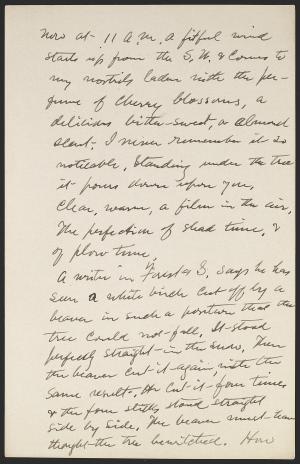 Now at 11 A.M. a fitful wind
starts up from the S.W. & comes to
my nostrils laden with the per-
fume of Cherry blossoms, a
delicious bitter-sweet, or almond
scent. I never remember it so
noticeable, Standing under the tree
it pours down upon you,
Clear, warm, a film in the air,
The perfection of shad time, &
of plow time,
A writer in Forest & S. says he has
seen a white birch cut off by a
beaver in such a position that the
tree could not fall. It stood
perfectly straight in the snow. Then
the beaver cut it again, with the
same result. He cut it four times
& the four stubs stood straight
side by side. The beaver must have
thought the tree bewitched. How